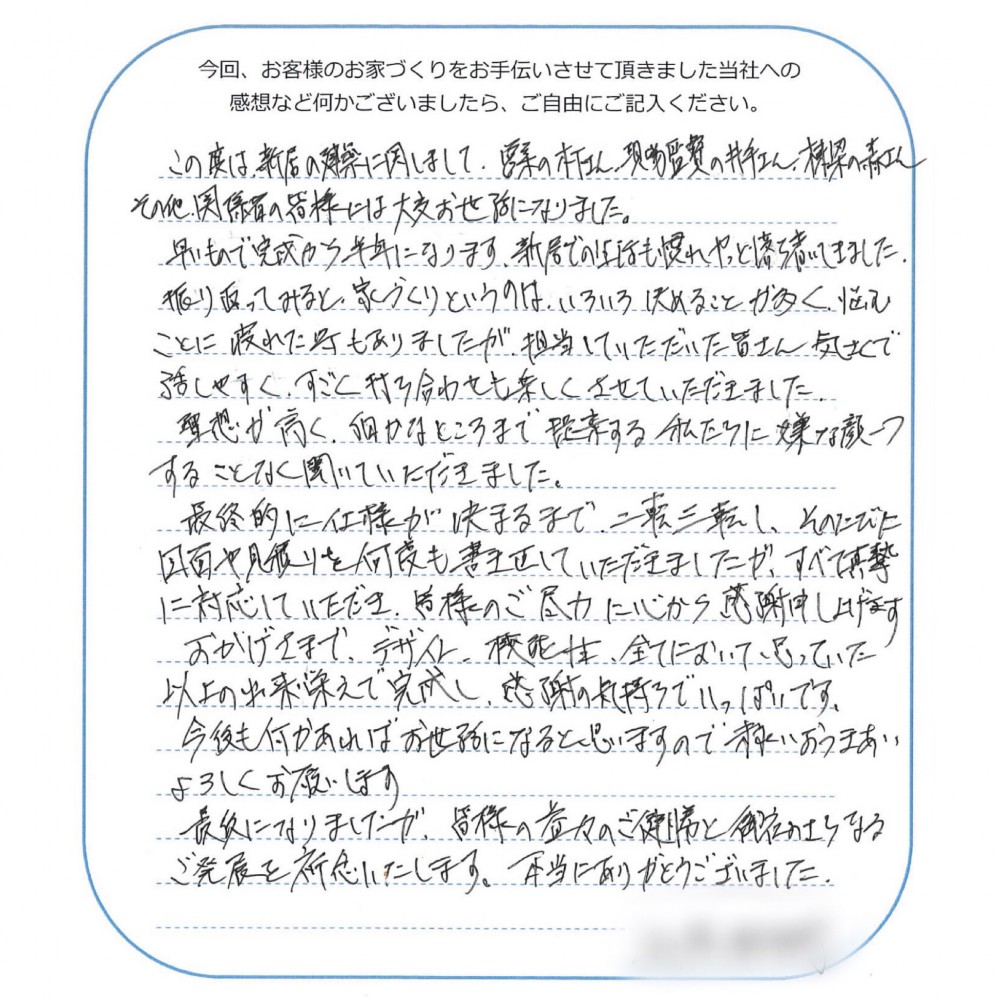 今回、お客様のお家づくりをお手伝いさせて頂きました当社への
感想など何かございましたら、ご自由にご記入ください。
この度は、新居の建築に関しまして、営業の村さん、現場監督の井手さん、棟梁の森さん
その他、関係者の皆様には大変お世話になりました。
早いもので完成から半年になります、新居での生活も慣れやっと落ち着いてきました。
振り返ってみると、家づくりというのは、いろいろ決めることが多く、悩む
ことに疲れた時もありましたが、担当していただいた皆さん気さくで
話しやすく、すごく打ち合わせも楽しくさせていただきました。
理想が高く、細かなところまで提案する私たちに嫌な顔一つ
することなく聞いていただきました。
最終的に仕様が決まるまで、二転三転し、そのたびに
図面や見積りを何度も書き直していただきましたが、すべて真摯
に対応していただき、皆様のご尽力に心から感謝申し上げます
おかげさまで、デザイン、機能性、全てにおいて思っていた
以上の出来栄えで完成し、感謝の気持ちでいっぱいです。
今後も何かあればお世話になると思いますので末永いおつきあい
よろしくお願いします
最後になりましたが、皆様の益々のご健勝と御社のさらなる
ご発展を祈念いたします。本当にありがとうございました。